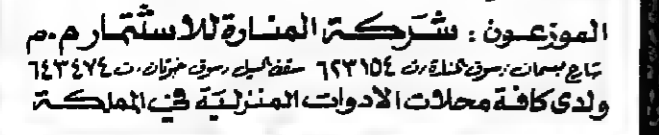 الموزعون : شركة المنارة للاستثمار م.م
شارع بسمان، سوق المنارة، ت ٦٢٣١٥٤ سقف السيل، سوق خرفان، ت ٦٤٣٤٧٤
ولدى كافة محلات الادوات المنزلية في المملكة